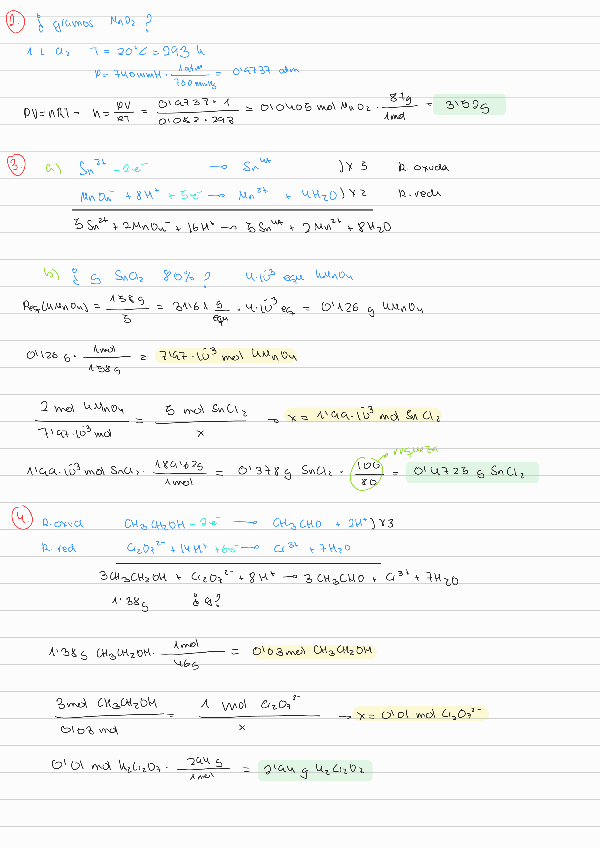 2. ¿ gramos MnO₂ ?
1 L Cl₂ T = 20°C = 293 K
P = 740mmH · 1atm / 760mmHg = 0'9737 atm
PV = nRT → n = PV / RT = 0'9737 · 1 / 0'082 · 293 = 0'0405 mol MnO₂ · 87g / 1mol = 3'52g
3. a) Sn²⁺ - 2e⁻ → Sn⁴⁺ ) x 5 R. oxida
MnO₄⁻ + 8H⁺ + 5e⁻ → Mn²⁺ + 4H₂O ) x 2 R. redu
5 Sn²⁺ + 2 MnO₄⁻ + 16 H⁺ → 5 Sn⁴⁺ + 2 Mn²⁺ + 8H₂O
b) ¿ g SnCl₂ 80% ? 4·10⁻³ equ KMnO₄
Peq (KMnO₄) = 158g / 5 = 31'61 g / equ · 4·10⁻³ eq = 0'126 g KMnO₄
0'126 g · 1mol / 158g = 7'97·10⁻³ mol KMnO₄
2 mol KMnO₄ / 7'97·10⁻³ mol = 5 mol SnCl₂ / x → x = 1'99·10⁻³ mol SnCl₂
riqueza
1'99·10⁻³ mol SnCl₂ · 189'62g / 1mol = 0'378g SnCl₂ · 100 / 80 = 0'4725 g SnCl₂
4. R. oxid CH₃CH₂OH - 2e⁻ → CH₃CHO + 2H⁺ ) x 3
R. red Cr₂O₇²⁻ + 14H⁺ + 6e⁻ → Cr³⁺ + 7H₂O
3CH₃CH₂OH + Cr₂O₇²⁻ + 8H⁺ → 3 CH₃CHO + Cr³⁺ + 7H₂O
1'38g ¿ g?
1'38g CH₃CH₂OH · 1mol / 46g = 0'03 mol CH₃CH₂OH
3mol CH₃CH₂OH / 0'03 mol = 1 mol Cr₂O₇²⁻ / x → x = 0'01 mol Cr₂O₇²⁻
0'01 mol K₂Cr₂O₇ · 294 g / 1mol = 2'94 g K₂Cr₂O₇